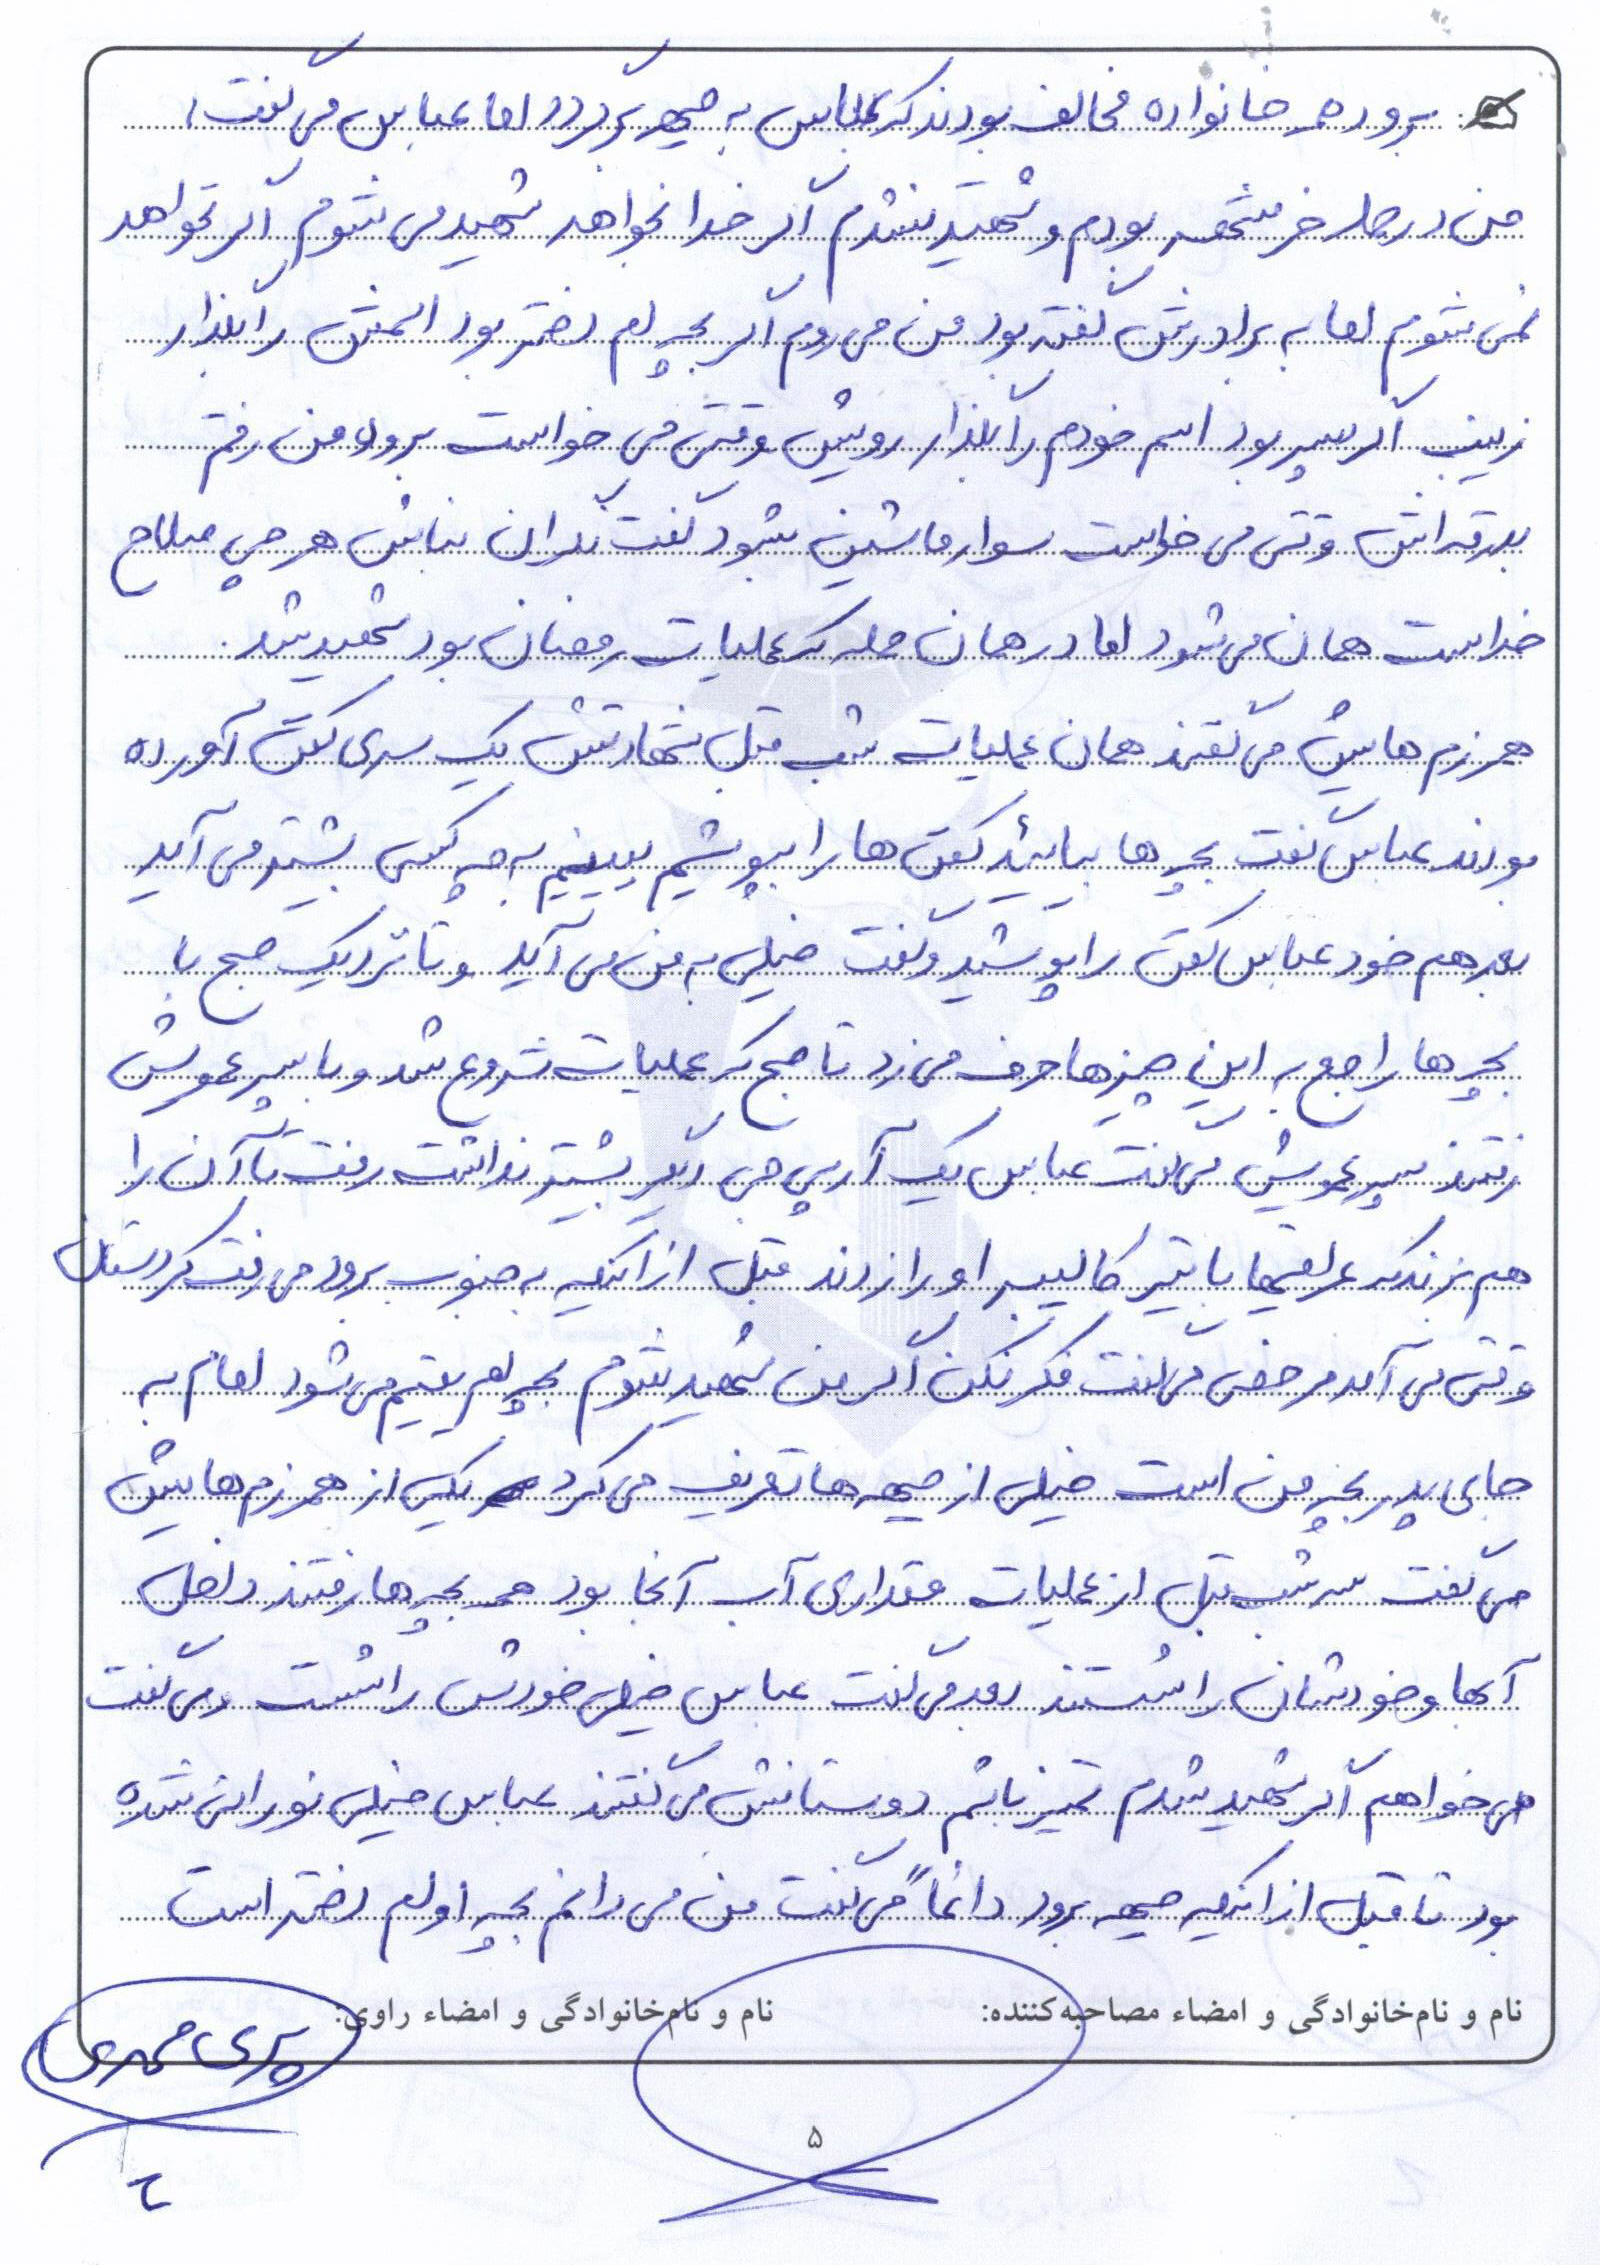 برود همه خانواده مخالف بودند که عباس به جبهه برود اما عباس می گفت،
من در حمله خرمشهر بودم و شهید نشدم اگر خدا بخواهد شهید می شوم اگر نخواهد
نمی شوم اما به برادرش گفته بود من می روم اگر بچه ام دختر بود اسمش را بگذار
زینب اگر پسر بود اسم خودم را بگذار رویش وقتی می خواست برود من رفتم
بدرقه اش وقتی می خواست سوار ماشین شود گفت نگران نباش هر چی صلاح
خداست همان می شود اما در همان حمله که عملیات رمضان بود شهید شد.
همرزم هایش می گفتند همان عملیات شب قبل شهادتش یک سری کفن آورده
بودند عباس گفت بچه ها بیائید کفن ها را بپوشیم ببینیم به چه کسی بیشتر می آید
بعد هم خود عباس کفن را پوشید و گفت خیلی به من می آید و تا نزدیک صبح با
بچه ها راجع به این چیزها حرف می زد تا صبح که عملیات شروع شد و با پسر عمویش
رفتند پسر عمویش می گفت عباس یک آرپی جی دیگر بیشتر نداشت رفت تا آن را
هم بزند که عراقیها با تیر کالیبر او را زدند قبل از اینکه به جنوب برود می رفت کردستان
وقتی می آمد مرخصی می گفت فکر نکن اگر من شهید شوم بچه ام یتیم می شود امام به
جای پدر بچه من است خیلی از جبهه ها تعریف می کرد یکی از همرزم هایش
می گفت سه شب قبل از عملیات مقداری آب آنجا بود همه بچه ها رفتند داخل
آبها و خودشان را شستند بعد می گفت عباس خیلی خودش را شست و می گفت
می خواهم اگر شهید شدم تمیز باشم دوستانش می گفتند عباس خیلی نورانی شده
بود تا قبل از اینکه جبهه برود دائماً می گفت من می دانم بچه اولم دختر است
نام و نام‌خانوادگی و امضاء مصاحبه‌کننده: نام و نام‌خانوادگی و امضاء راوی:
پری محمدی
۵